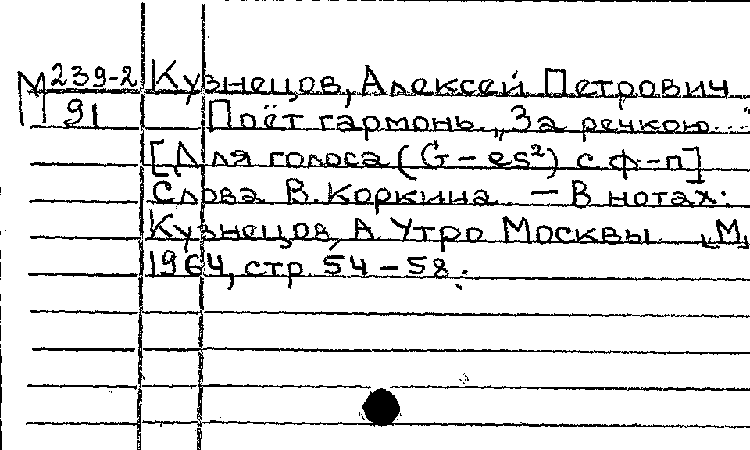 М 239-2 Кузнецов, Алексей Петрович
91 Поёт гармонь „За речкою..."
[Для голоса (G – es²) с ф-п]
Слова В. Коркина. – В нотах:
Кузнецов, А. Утро Москвы. М,
1964, стр. 54 – 58.